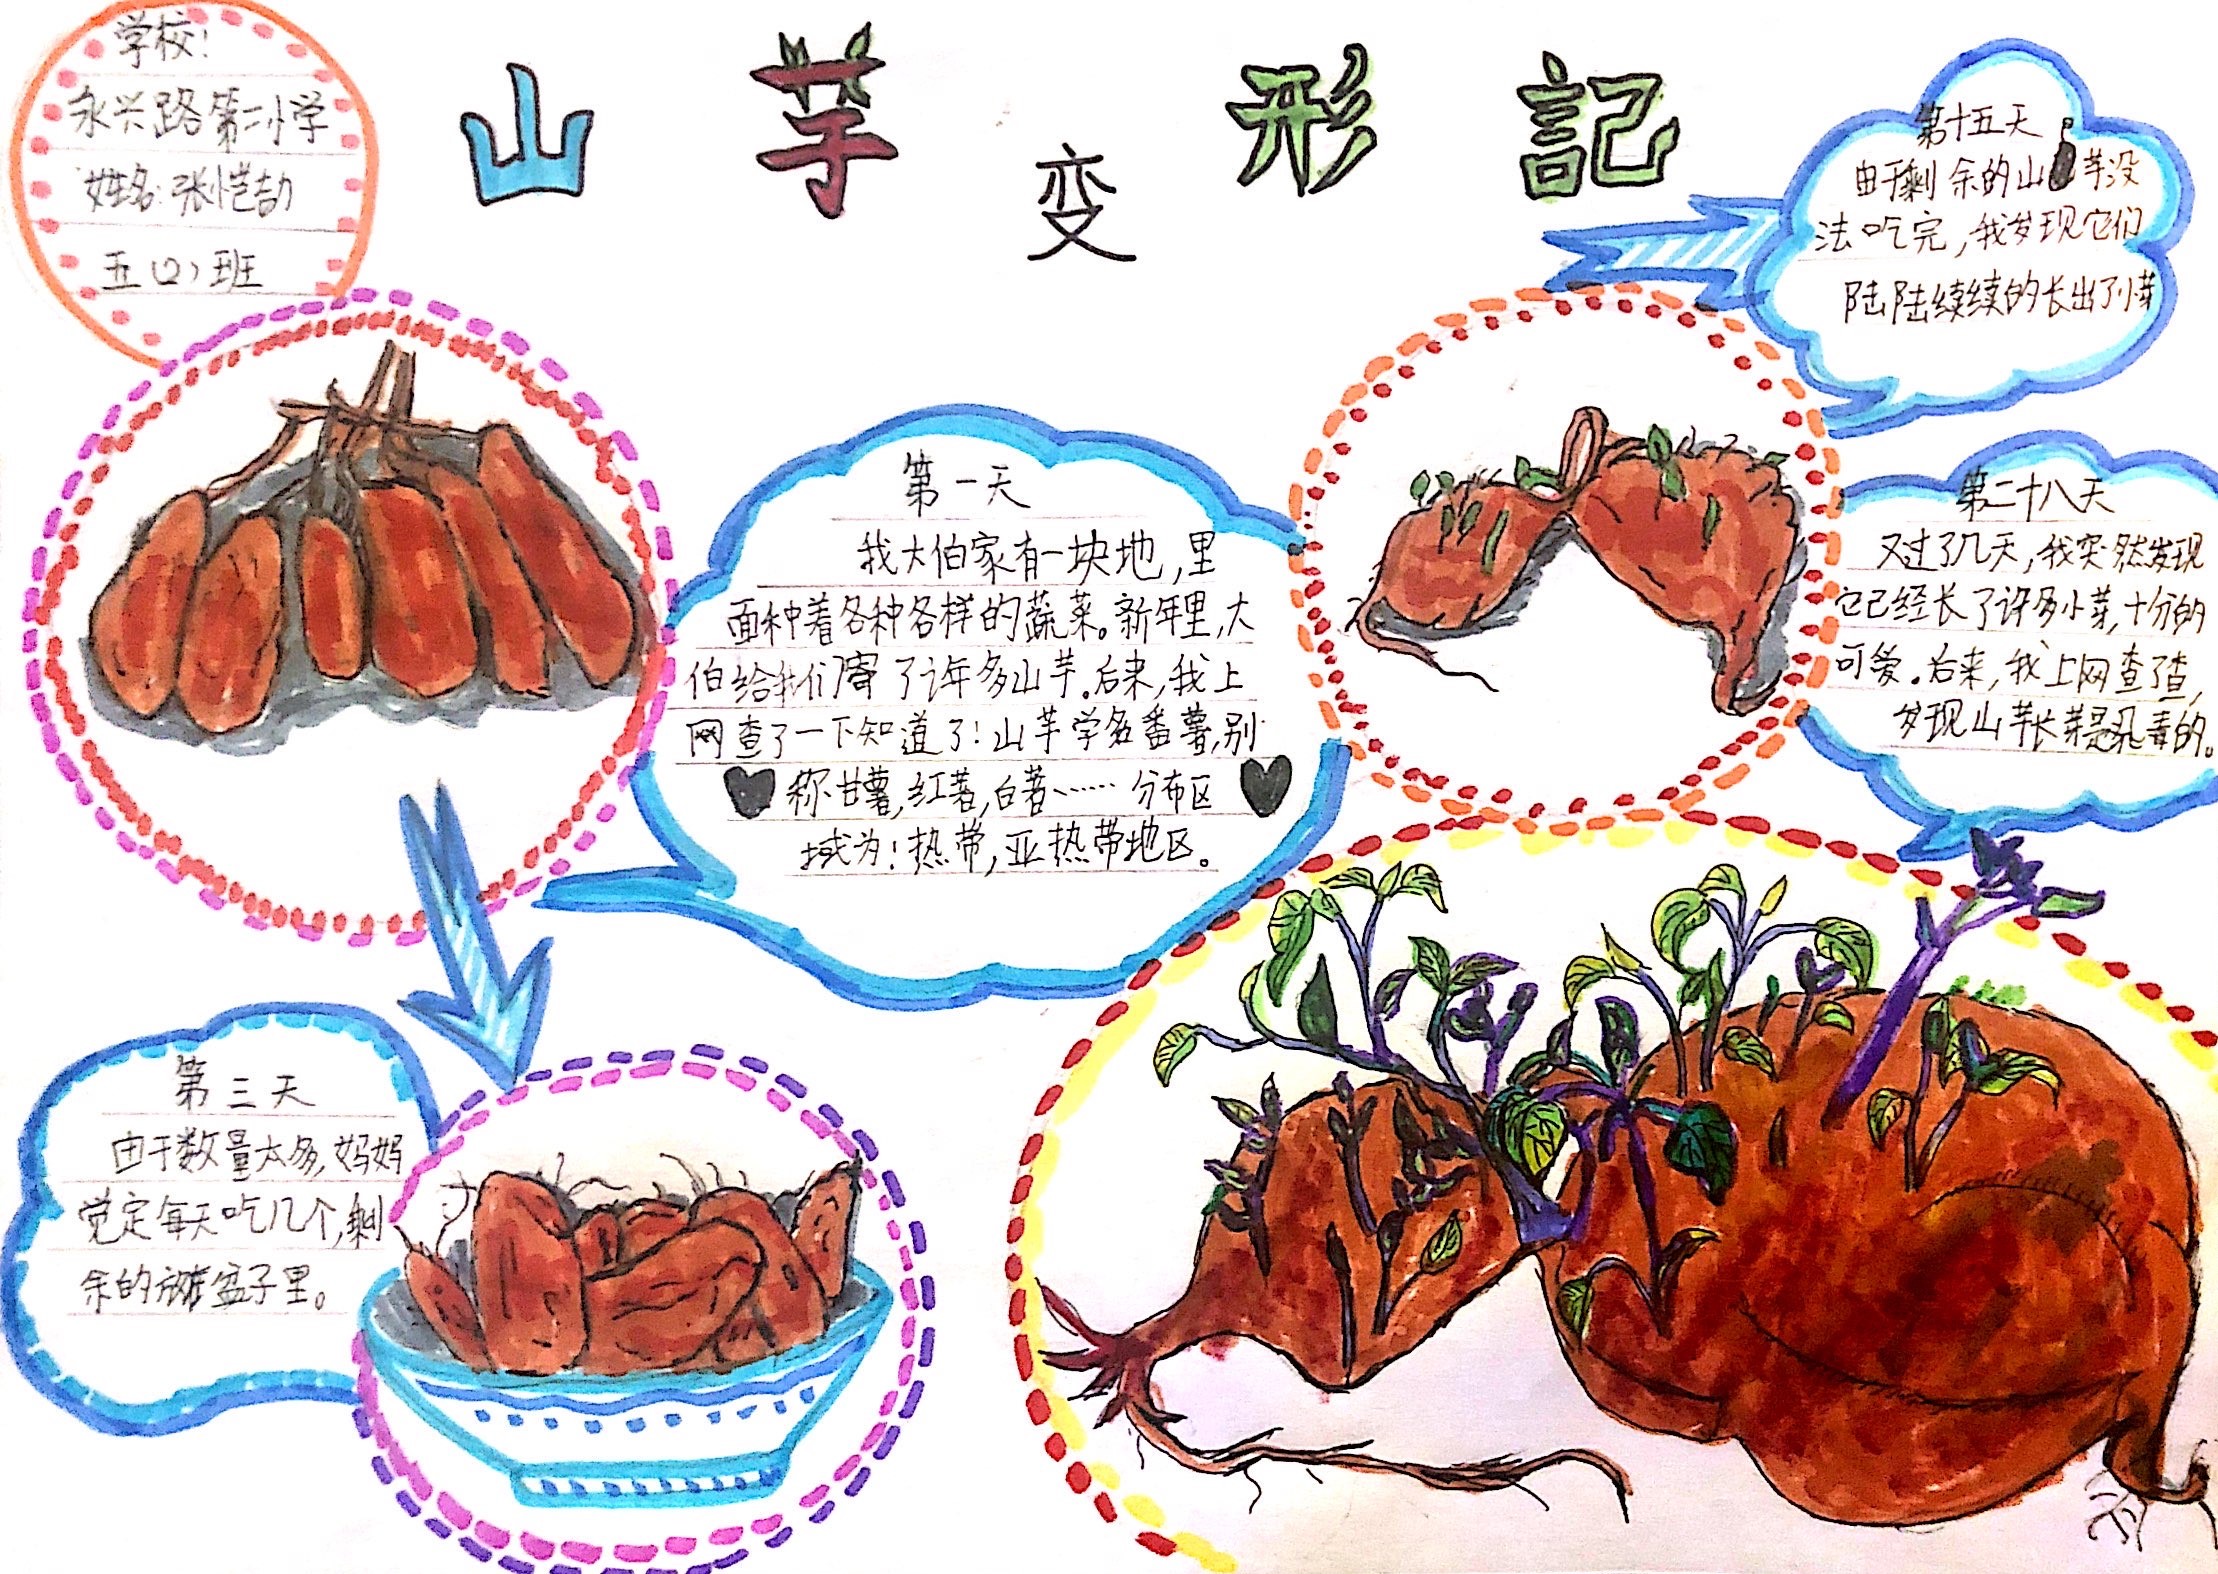 学校:
永兴路第二小学
姓名:张恺劼
五(2)班
山芋变形記
第一天
我大伯家有一块地,里
面种着各种各样的蔬菜。新年里,大
伯给我们寄了许多山芋。后来,我上
网查了一下知道了!山芋学名番薯,别
称甘薯,红薯,白薯……分布区
域为:热带,亚热带地区。
第三天
由于数量太多,妈妈
觉定每天吃几个,剩
余的放在盆子里。
第十五天
由于剩余的山芋没
法吃完,我发现它们
陆陆续续的长出了小芽
第二十八天
又过了几天,我突然发现
它已经长了许多小芽,十分的
可爱。后来,我上网查了查,
发现山芋长芽是无毒的。